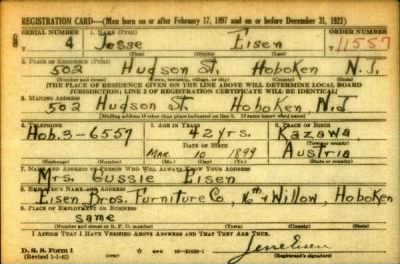 REGISTRATION CARD—(Men born on or after February 17, 1897 and on or before December 31, 1921)
SERIAL NUMBER 1. NAME (Print) ORDER NUMBER
4 Jesse Eisen 11557
(First) (Middle) (Last)
2. PLACE OF RESIDENCE (Print)
502 Hudson St. Hoboken N.J.
(Number and street) (Town, township, village, or city) (County) (State)
(THE PLACE OF RESIDENCE GIVEN ON THE LINE ABOVE WILL DETERMINE LOCAL BOARD
JURISDICTION; LINE 2 OF REGISTRATION CERTIFICATE WILL BE IDENTICAL)
3. MAILING ADDRESS
502 Hudson St. Hoboken N.J
(Mailing address if other than place indicated on line 2. If same insert word same)
4. TELEPHONE 5. AGE IN YEARS 6. PLACE OF BIRTH
Hob. 3-6557 42 yrs. Razawa
DATE OF BIRTH (Town or county)
Mar. 10 1899 Austria
(Exchange) (Number) (Mo.) (Day) (Yr.) (State or country)
7. NAME AND ADDRESS OF PERSON WHO WILL ALWAYS KNOW YOUR ADDRESS
Mrs. Gussie Eisen
8. EMPLOYER'S NAME AND ADDRESS
Eisen Bros. Furniture Co, 16th & Willow, Hoboken
9. PLACE OF EMPLOYMENT OR BUSINESS
same
(Number and street or R. F. D. number) (Town) (County) (State)
I AFFIRM THAT I HAVE VERIFIED ABOVE ANSWERS AND THAT THEY ARE TRUE.
D. S. S. Form 1
(Revised 1-1-42) (over) Jesse Eisen
(Registrant's signature)